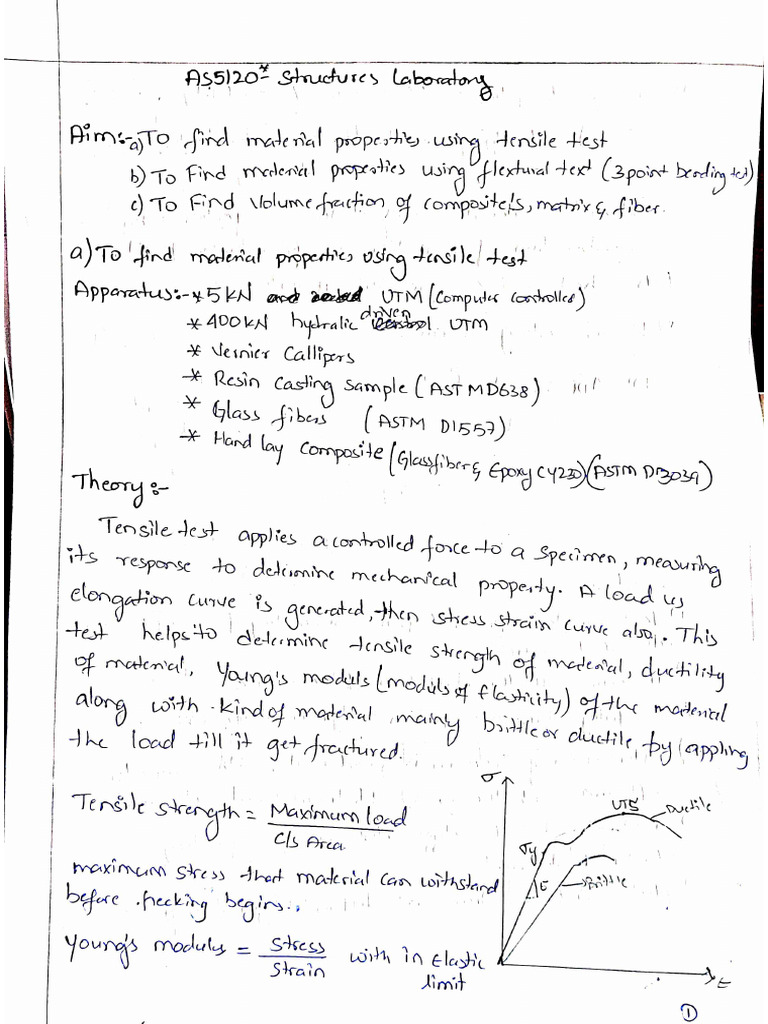 AS5120* Structures Laboratory
Aim:- a) To find material properties using tensile test
b) To Find material properties using flextural text (3 point bending test)
c) To Find Volume fraction of composite's, matrix & fiber.
a) To find material properties using tensile test
Apparatus:- * 5 kN UTM (Computer controlled)
* 400 kN hydralic driven UTM
* Vernier Callipers
* Resin Casting Sample (ASTM D638)
* Glass fibers (ASTM D1557)
* Hand lay composite (Glass fiber & Epoxy CY230) (ASTM D3039)
Theory:-
Tensile test applies a controlled force to a specimen, measuring
its response to determine mechanical property. A load vs
elongation curve is generated, then stress strain curve also. This
test helps to determine tensile strength of material, ductility
of material, Young's moduls (moduls of Elasticity) of the material
along with kind of material mainly brittle or ductile, by appling
the load till it get fractured.
Tensile strength = Maximum load
C/s Area
maximum stress that material can withstand
before necking begins.
Young's modulus = Stress
Strain
with in Elastic
limit
σ
UTS
Ductile
σy
E
Brittle
ε
1